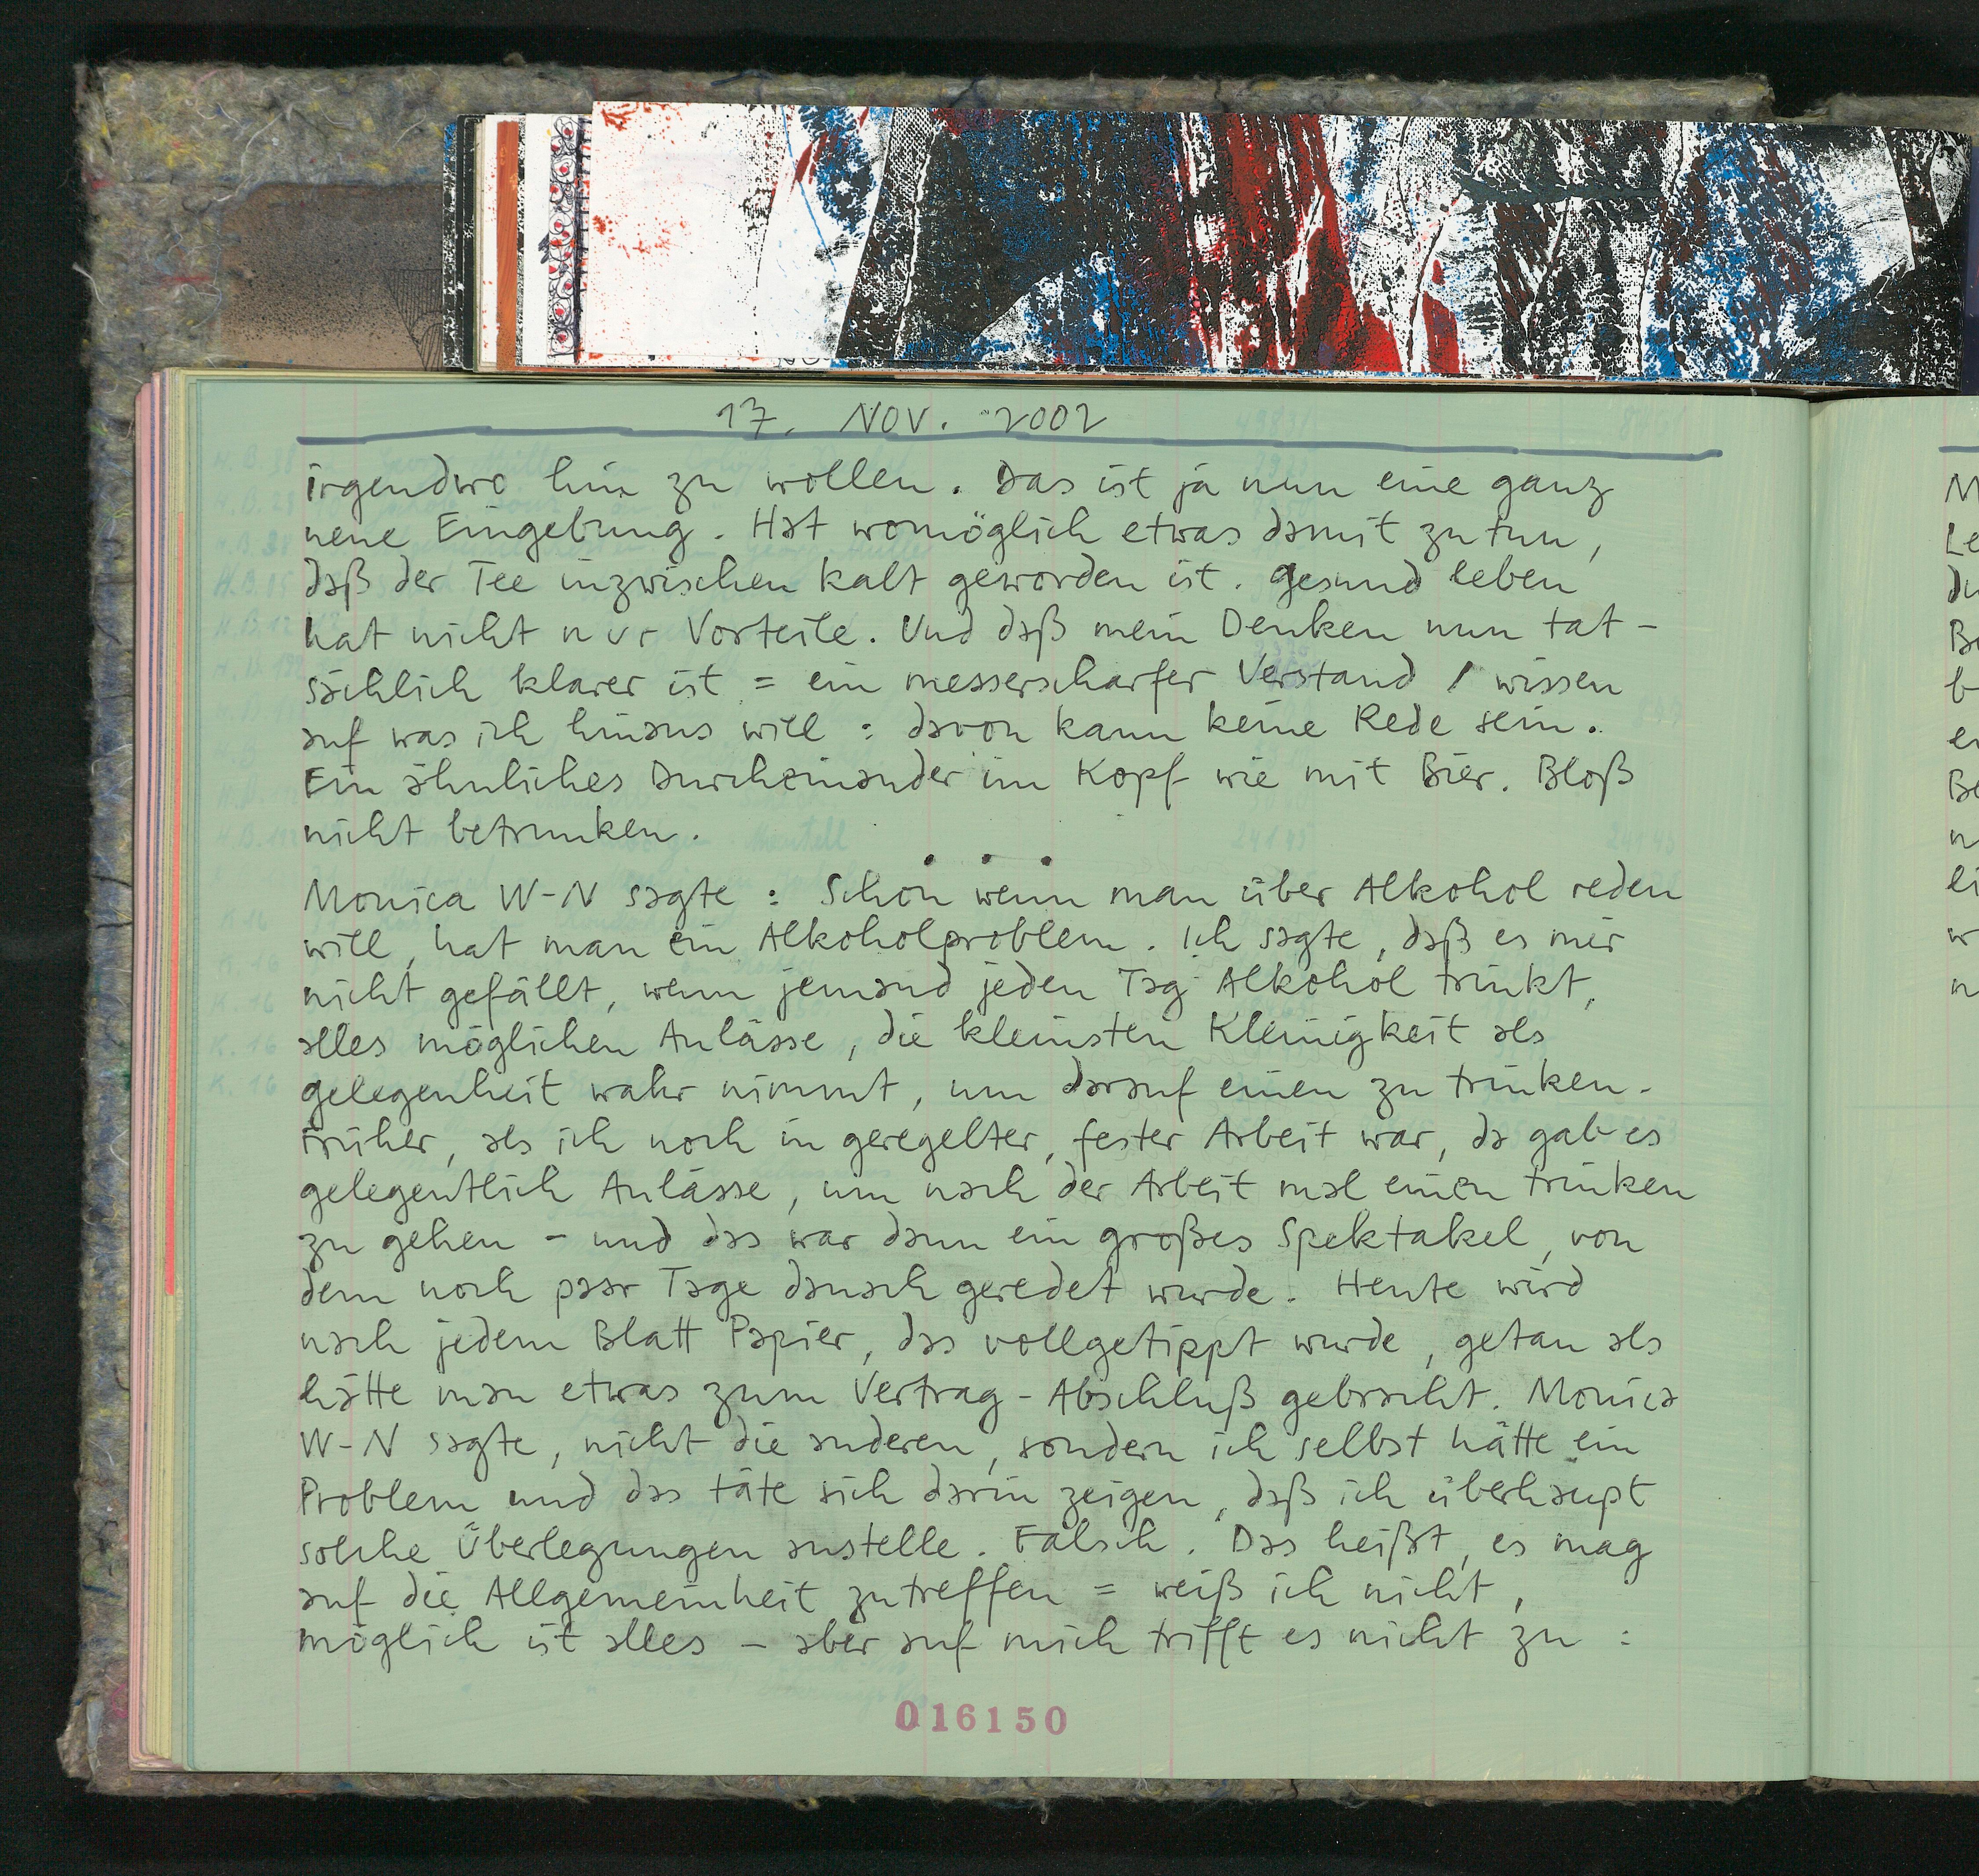 17. NOV. 2002
irgendwo hin zu wollen. Das ist ja nun eine ganz
neue Eingebung. Hat womöglich etwas damit zu tun,
daß der Tee inzwischen kalt geworden ist. Gesund leben
hat nicht nur Vorteile. Und daß mein Denken nun tat-
sächlich klarer ist = ein messerscharfer Verstand / wissen
auf was ich hinaus will : davon kann keine Rede sein.
Ein ähnliches Durcheinander im Kopf wie mit Bier. Bloß
nicht betrunken.
. . .
Monica W-N sagte : Schon wenn man über Alkohol reden
will, hat man ein Alkoholproblem. Ich sagte, daß es mir
nicht gefällt, wenn jemand jeden Tag Alkohol trinkt,
alles möglichen Anlässe, die kleinsten Kleinigkeit als
gelegenheit wahr nimmt, um darauf einen zu trinken.
Früher, als ich noch in geregelter, fester Arbeit war, da gab es
gelegentlich Anlässe, um nach der Arbeit mal einen trinken
zu gehen - und das war dann ein großes Spektakel, von
dem noch paar Tage danach geredet wurde. Heute wird
nach jedem Blatt Papier, das vollgetippt wurde, getan als
hätte man etwas zum Vertrag-Abschluß gebracht. Monica
W-N sagte, nicht die anderen, sondern ich selbst hätte ein
Problem und das täte sich darin zeigen, daß ich überhaupt
solche Überlegungen anstelle. Falsch. Das heißt, es mag
auf die Allgemeinheit zutreffen = weiß ich nicht,
möglich ist alles - aber auf mich trifft es nicht zu :
016150